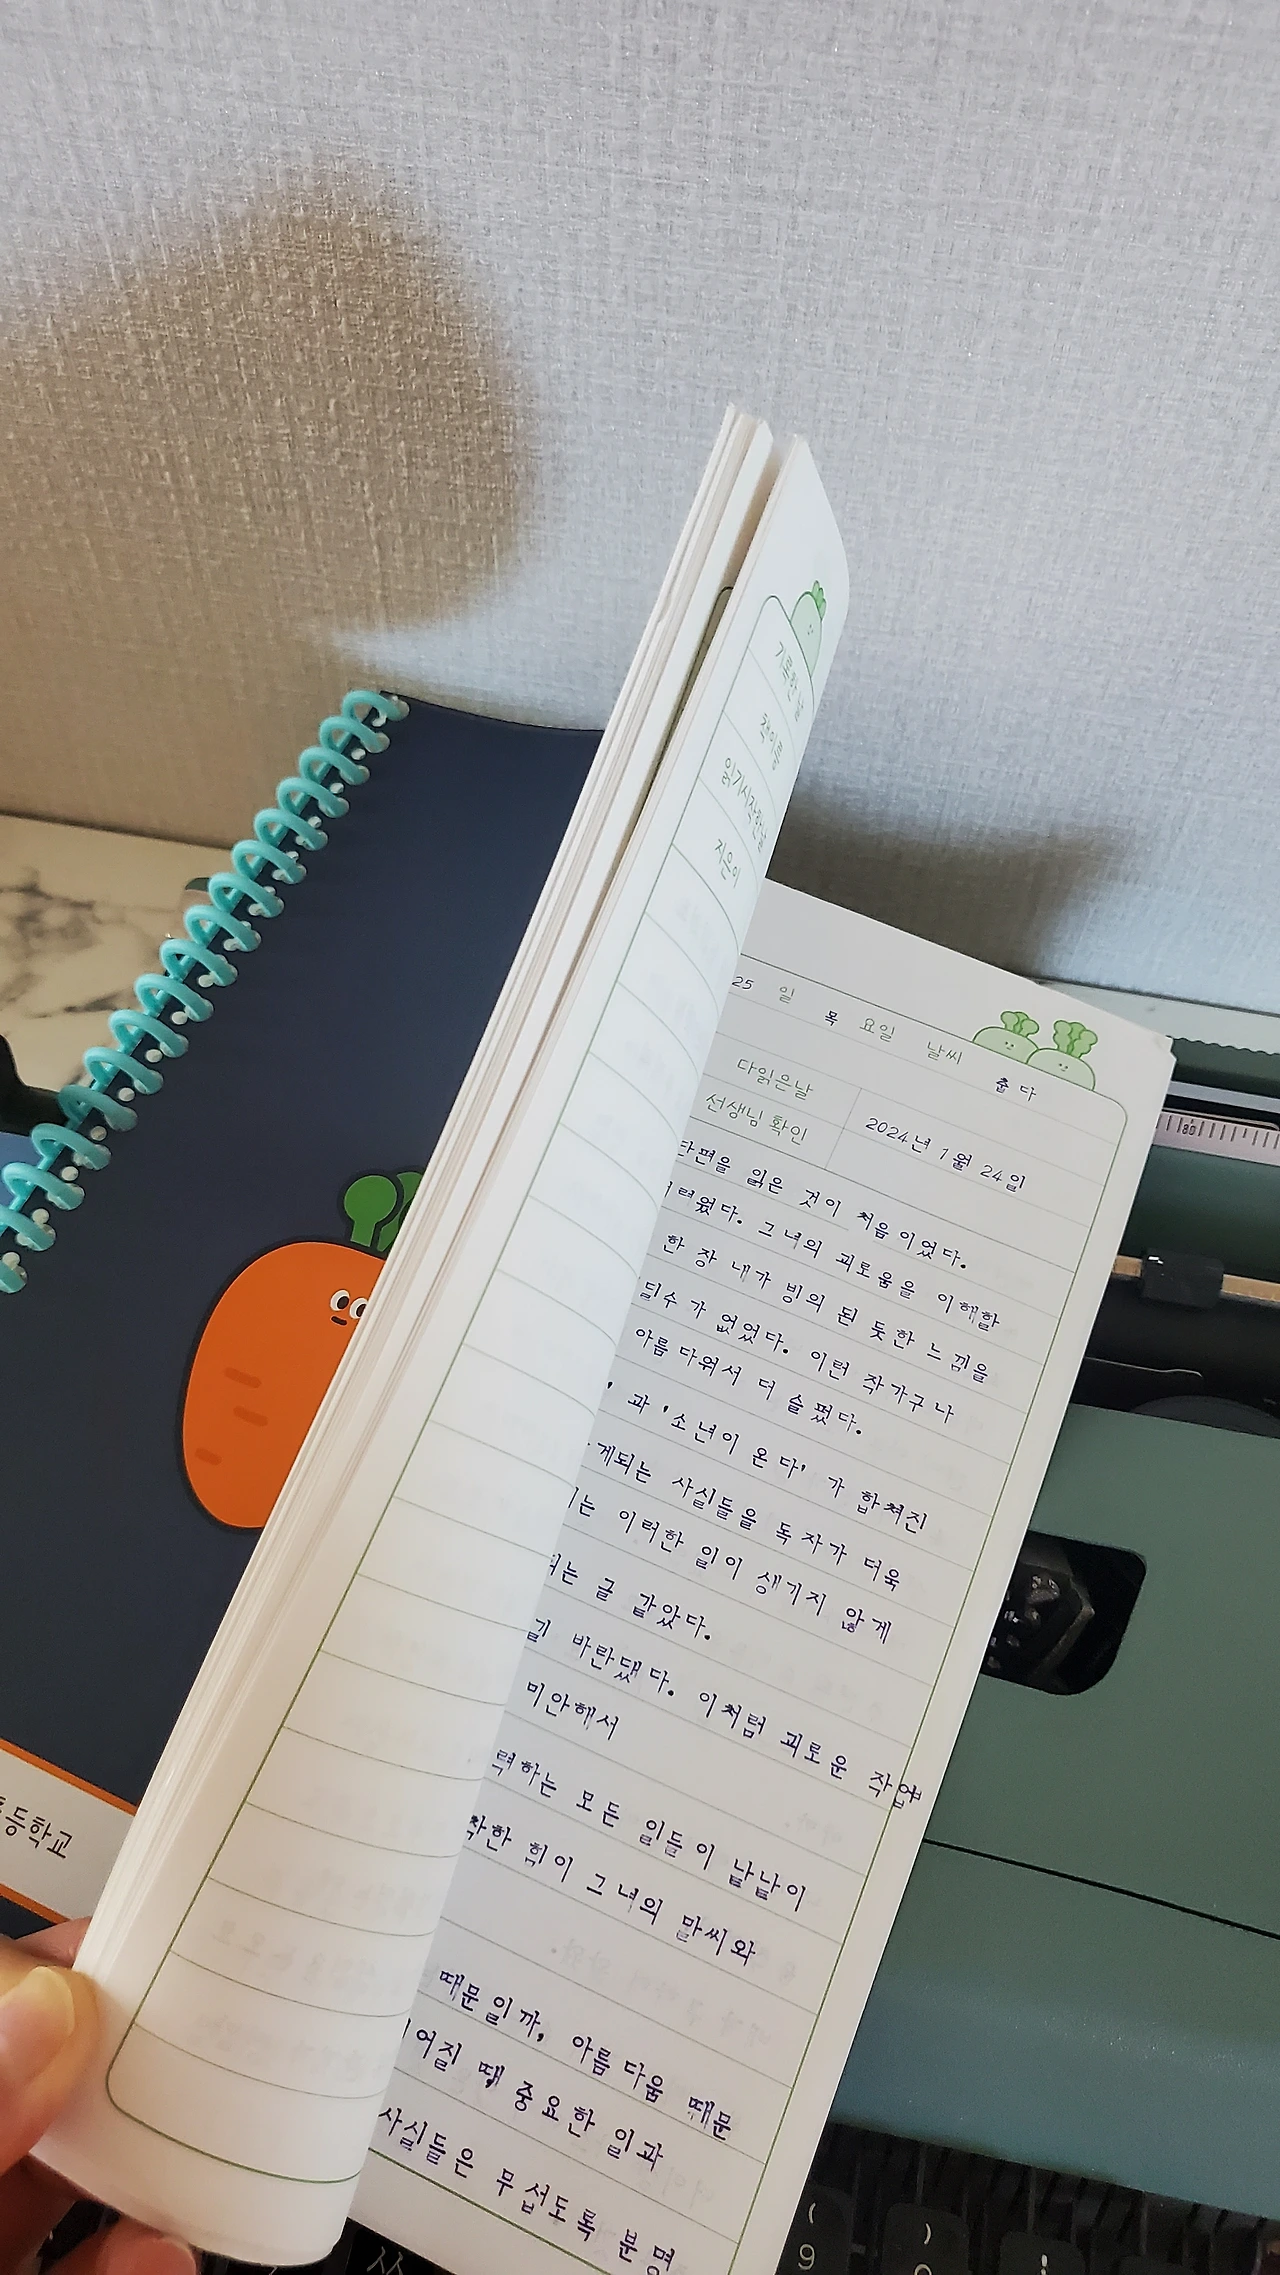 기록한 날
책이름
읽기시작한날
지은이
25 일 목 요일 날씨 춥다
다읽은날 2024년 1월 24일
선생님 확인
단편을 읽은 것이 처음이었다.
려웠다. 그녀의 괴로움을 이해할
한 장 내가 빙의 된 듯한 느낌을
딜수가 없었다. 이런 작가구나
아름다워서 더 슬펐다.
' 과 '소년이 온다' 가 합쳐진
게되는 사실들을 독자가 더욱
는 이러한 일이 생기지 않게
는 글 같았다.
길 바란댔다. 이처럼 괴로운 작업
미안해서
력하는 모든 일들이 낱낱이
착한 휘이 그녀의 말씨와
때문일까, 아름다움 때문
어질 때 중요한 일과
사실들은 무섭도록 분명
등학교
ㅆ
( 9
)